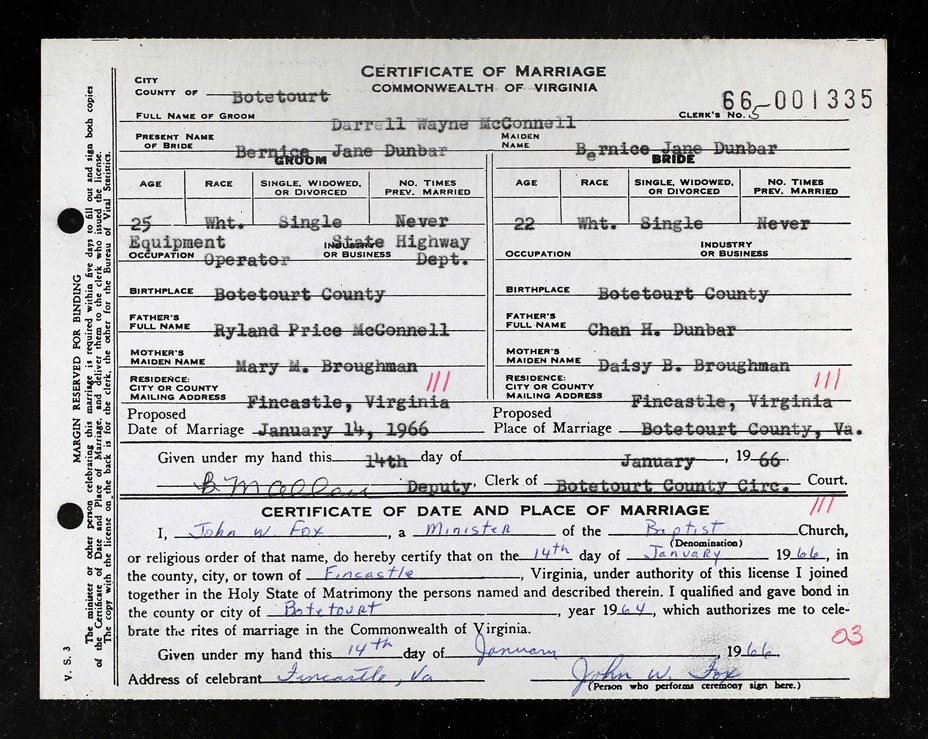 CERTIFICATE OF MARRIAGE
COMMONWEALTH OF VIRGINIA
CITY
COUNTY OF Botetourt
66-001335
CLERK'S No. 5
FULL NAME OF GROOM Darrell Wayne McConnell
PRESENT NAME OF BRIDE Bernice Jane Dunbar MAIDEN NAME Bernice Jane Dunbar
GROOM BRIDE
AGE RACE SINGLE, WIDOWED, OR DIVORCED NO. TIMES PREV. MARRIED AGE RACE SINGLE, WIDOWED, OR DIVORCED NO. TIMES PREV. MARRIED
25 Wht. Single Never 22 Wht. Single Never
OCCUPATION Equipment Operator INDUSTRY OR BUSINESS State Highway Dept. OCCUPATION INDUSTRY OR BUSINESS
BIRTHPLACE Botetourt County BIRTHPLACE Botetourt County
FATHER'S FULL NAME Ryland Price McConnell FATHER'S FULL NAME Chan H. Dunbar
MOTHER'S MAIDEN NAME Mary M. Broughman MOTHER'S MAIDEN NAME Daisy B. Broughman
RESIDENCE: CITY OR COUNTY MAILING ADDRESS Fincastle, Virginia 111 RESIDENCE: CITY OR COUNTY MAILING ADDRESS Fincastle, Virginia 111
Proposed Date of Marriage January 14, 1966 Proposed Place of Marriage Botetourt County, Va.
Given under my hand this 14th day of January, 1966.
Deputy Clerk of Botetourt County Circ. Court.
CERTIFICATE OF DATE AND PLACE OF MARRIAGE 111
I, John W. Fox, a Minister of the Baptist Church,
(Denomination)
or religious order of that name, do hereby certify that on the 14th day of January 1966, in
the county, city, or town of Fincastle, Virginia, under authority of this license I joined
together in the Holy State of Matrimony the persons named and described therein. I qualified and gave bond in
the county or city of Botetourt, year 1964, which authorizes me to cele-
brate the rites of marriage in the Commonwealth of Virginia.
03
Given under my hand this 14th day of January, 1966
Address of celebrant Fincastle, Va John W. Fox
(Person who performs ceremony sign here.)
MARGIN RESERVED FOR BINDING
The minister or other person celebrating this marriage is required within five days to fill out and sign both copies
of the Certificate of Date and Place of Marriage, and deliver them to the clerk who issued the license.
The copy with the license on the back is for the clerk, the other for the Bureau of Vital Statistics.
V. S. 3